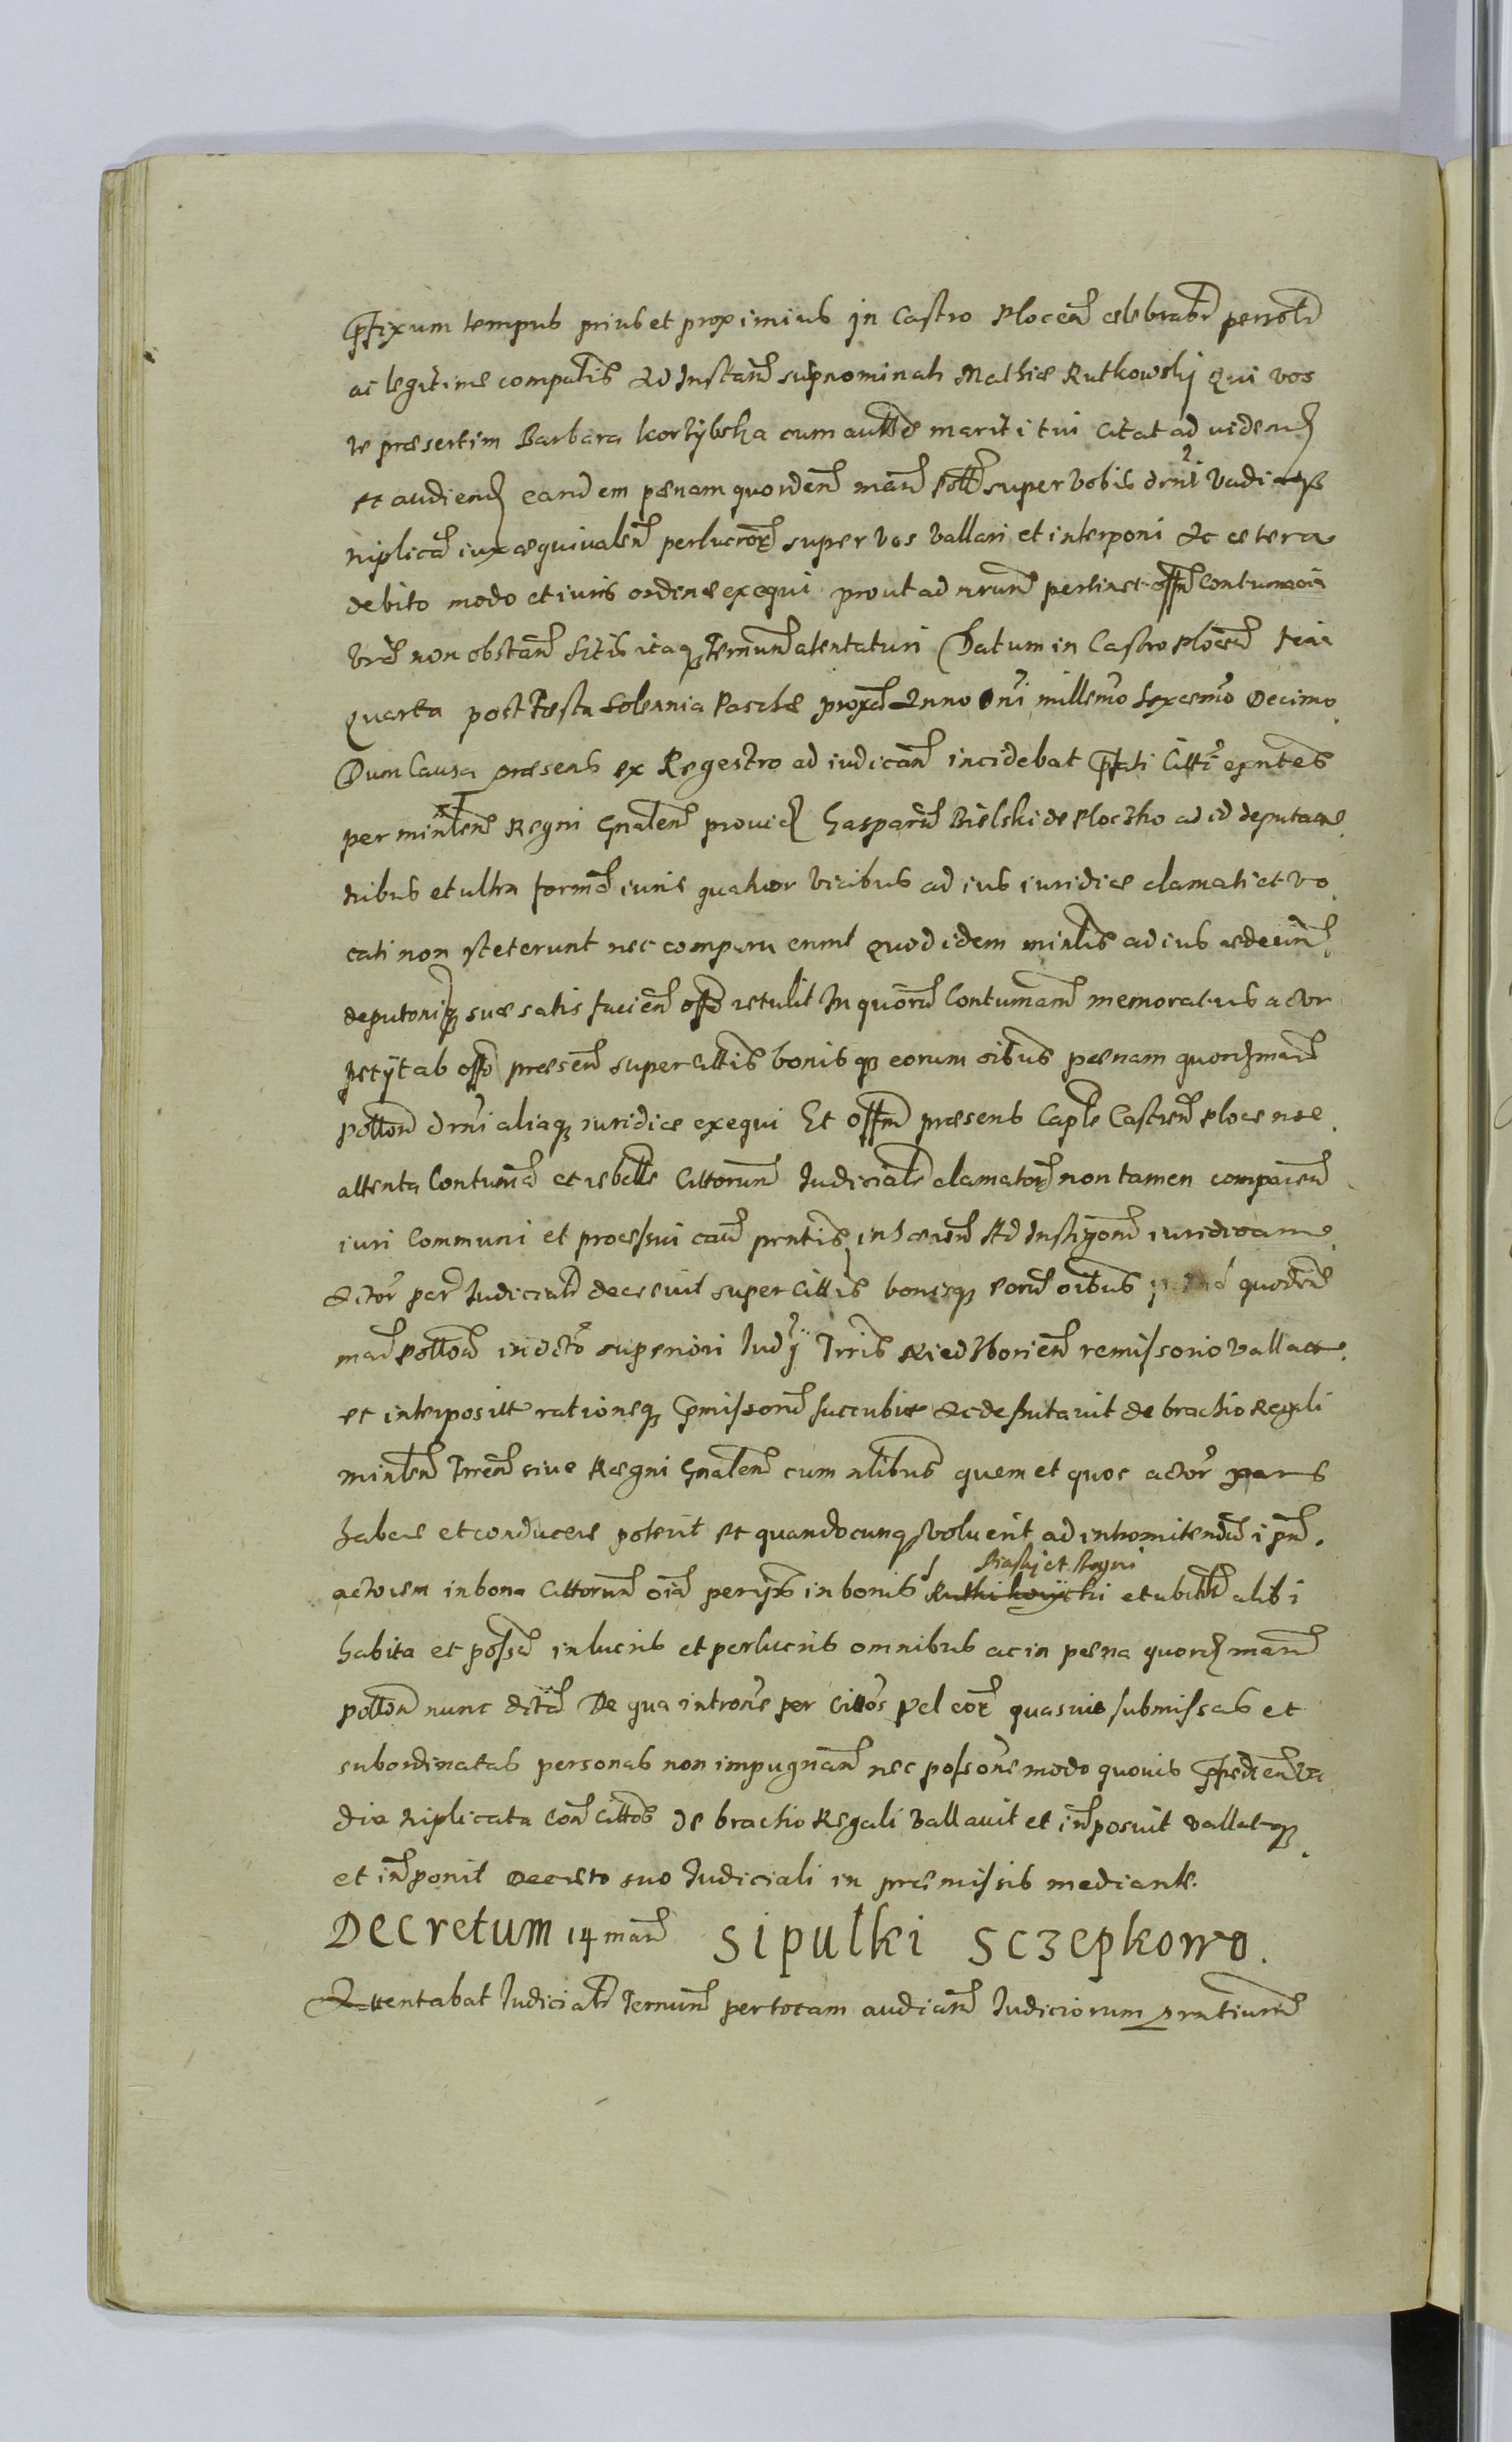 pfixum tempus prius et proximius in Castro Plocen celebrabr personlr
ac legitime compatis Ad Instan supnominati Mathiæ Rutkowskj Qui vos
te præsertim Barbara Korzÿbska cum autte mariti tui citat ad videnđ
et audienđ eandem pænam quorden marc poll super vobis drni Vadiaqз
triplica iux æquivalen perlucror super vos vallari et interponi Ac cetera
debito modo et iuris ordine exequi prout ad nrum pertinet offm Contumacia
vra non obstan Sitis itaqз Termin atentaturi Datum in Castro Plocen feria
quarta post Festa Solennia Paschæ prox Anno Dni millemo Sexcemo Decimo
Dum Causa præsens ex Regestro ad iudican incidebat pfati Citti exntes
per minlem Regni Gnalem providđ Gasparu Bielski de Ploczko ad id deputatu
tribus et ultra forma iuris quatuor vicibus ad ius iuridice clamati et vo
cati non steterunt nec comparuerunt Quod idem minlis ad ius redeun
deputoniqз suæ satis facien offo retulit In quoru Contumam memoratus actor
petÿt ab offo præsen super cittis bonisqз eorum oibus pænam quordз marc
pollon drni aliaqз iuridice exequi Et Offm præsens Caple Castren Plocense
attenta Contuma et rebelle Cittorum Judicialr clamator non tamen comparen
iuri Communi et processui caus prntis inhæren Ad Instigon iuridicam
Actor par Judicialr decrevit super cittis bonisqз eoru oibus quorden
marc pollon in dcto superiori Judÿ Trris Niedzborien remissorio vallatt
et interposit rationeqз pmissoru succubit Ac deputavit de brachio Regali
minlem Trren sive Regni Gnalem cum nlibus quem et quos actor pars
habere et conducere poterit et quandocunqз voluerit ad intromitendu ipm
actorem in bona Cittorum oia perijt in bonis Piaskj et Rogni Ruthikowÿchi et ubilibt alibi
habita et possa in lucris et perlucris omnibus ac in pæna quordз marc
pollon nunc dcta De qua introne per cittos vel eor quasvis submissas et
subordinatas personas non impugnan nec possone modo quovis pfedien va
dia triplicata Con cittos de brachio Regali vallavit et inposuit vallatqз
et inponit Decreto suo Judiciali in præmissis mediante.
Decretum 14 marc Sipulki Sczepkowo.
Attentabat Judicialr Terminu per totam audian Judiciorum prntium